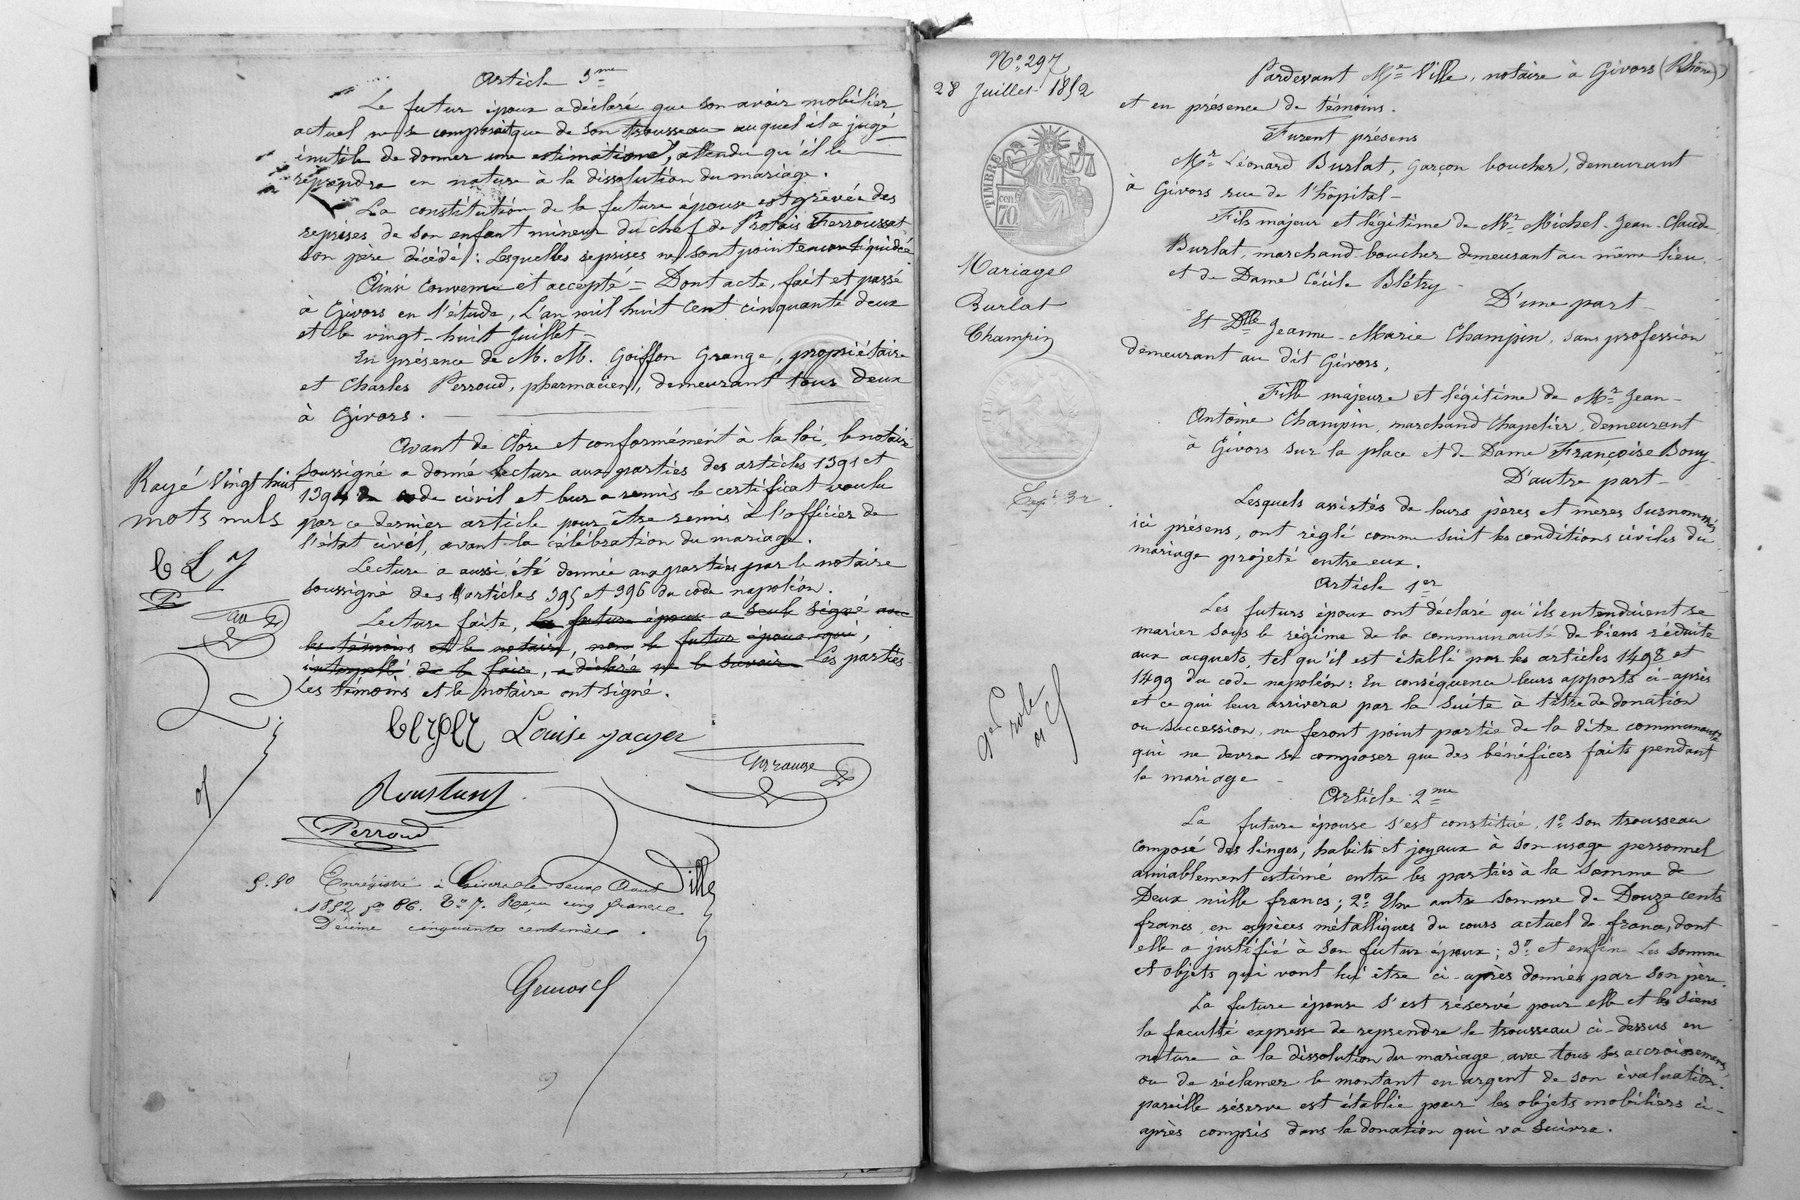 Article 3me
Le futur époux a déclaré que son avoir mobilier
actuel ne se composait que de son trousseau auquel il a jugé
inutile de donner une estimation, attendu qu'il le
reprendra en nature à la dissolution du mariage.
La constitution de la future épouse est grevée des
reprises de son enfant mineur du chef de Protais Ferroussat
son père décédé: lesquelles reprises ne sont point encore liquidées
Ainsi convenu et accepté = Dont acte, fait et passé
à Givors en l'étude, L'an mil huit cent cinquante deux
et le vingt-huit Juillet
En présence de M. M. Goiffon Grange, propriétaire
et Charles Perroud, pharmacien, demeurant tous deux
à Givors.
Avant de Clore et conformément à la loi, le notaire
soussigné a donné lecture aux parties des articles 1391 et
1394 du code civil et leur a remis le certificat voulu
par ce dernier article pour être remis à l'officier de
l'état civil, avant la célébration du mariage.
Lecture a aussi été donnée aux parties par le notaire
soussigné des articles 395 et 396 du code napoléon.
Lecture faite, la future épouse a seule signé avec
les témoins et le notaire, non le futur époux qui,
interpellé de le faire, a déclaré ne le savoir Les parties
Les témoins et le notaire ont signé.
Rayé Vingt huit
mots nuls
Louise
Grange
Perroud
Ville
5.50
Enregistré à Givors le deux Août
1852 fo 86. Co 7. Reçu cinq francs
Décime cinquante centimes.
No 297
28 Juillet 1852
TIMBRE
70 cen
Mariage
Burlat
Champin
1er role
Pardevant Me Ville, notaire à Givors (Rhône)
et en présence de témoins.
Furent présens
Mr Léonard Burlat, garçon boucher, demeurant
à Givors rue de l'hôpital -
Fils majeur et légitime de Mr Michel-Jean-Claude
Burlat, marchand boucher demeurant au même lieu,
et de Dame Cécile Blétry -
D'une part -
Et Dlle Jeanne-Marie Champin, sans profession
demeurant au dit Givors,
Fille majeure et légitime de Mr Jean-
Antoine Champin, marchand Chapelier, demeurant
à Givors sur la place et de Dame Françoise Bouy
D'autre part -
Lesquels assistés de leurs pères et mères susnommés
ici présens, ont réglé comme suit les conditions civiles du
mariage projeté entre eux.
Article 1er
Les futurs époux ont déclaré qu'ils entendaient se
marier sous le régime de la communauté de biens réduite
aux acquets, tel qu'il est établi par les articles 1498 et
1499 du code napoléon: En conséquence leurs apports ci-après
et ce qui leur arrivera par la suite à titre de donation
ou succession, ne feront point partie de la dite communauté
qui ne devra se composer que des bénéfices faits pendant
le mariage -
Article 2me
La future épouse s'est constitué, 1o son trousseau
composé des linges, habits et joyaux à son usage personnel
amiablement estimé entre les parties à la somme de
Deux mille francs; 2o Une autre somme de Douze cents
francs en espèces métalliques du cours actuel de france, dont
elle a justifié à son futur époux; 3o et enfin Les somme
et objets qui vont lui être ci-après donnés par son père.
La future épouse s'est réservé pour elle et les siens
la faculté expresse de reprendre le trousseau ci-dessus en
nature à la dissolution du mariage, avec tous ses accroissemens,
ou de réclamer le montant en argent de son évaluation.
pareille réserve est établie pour les objets mobiliers ci-
après compris dans la donation qui va suivre.